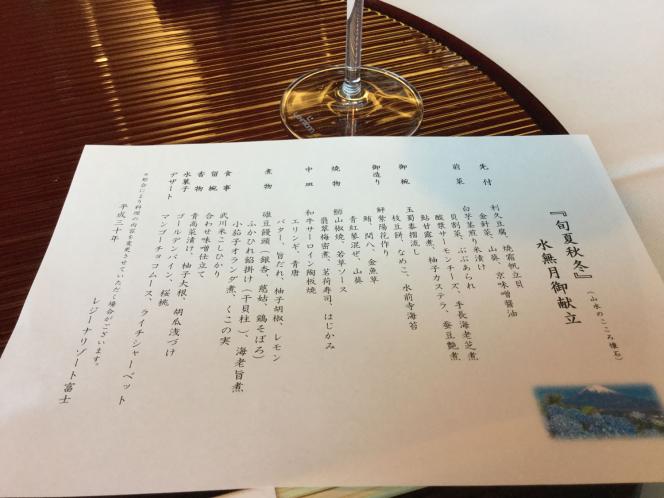 『旬夏秋冬』
（山水のこころ懐石）
水無月御献立
先付
利久豆腐、焼霜帆立貝
金針菜、山葵、京味噌醤油
前菜
白芋茎煎り米漬け
貝割菜、ぶぶあられ
手長海老芝煮
酸漿サーモンチーズ、
鮎甘露煮、柚子カステラ、蚕豆艶煮
御椀
玉蜀黍摺流し
枝豆餅、なめこ、水前寺海苔
御造り
鮮紫陽花作り
鮪、間八、金魚草
青紅蓼混ぜ、山葵
焼物
鱸山椒焼、若草ソース
翡翠梅密煮、茗荷寿司、はじかみ
中皿
和牛サーロイン陶板焼
エリンギ、青唐
バター、旨だれ、柚子胡椒、レモン
煮物
碓豆饅頭（銀杏、慈姑、鶏そぼろ）
ふかひれ餡掛け（干貝柱）、海老旨煮
小茄子オランダ煮、くこの実
食事
武川米こしひかり
留椀
合わせ味噌仕立て
香物
青高菜漬け、柚子大根、胡瓜浅づけ
水菓子
ゴールデンパイン、桜桃
デザート
マンゴーチョコムース、ライチシャーベット
＊都合により料理の内容を変更させていただく場合がございます。
平成三十年
レジーナリゾート富士